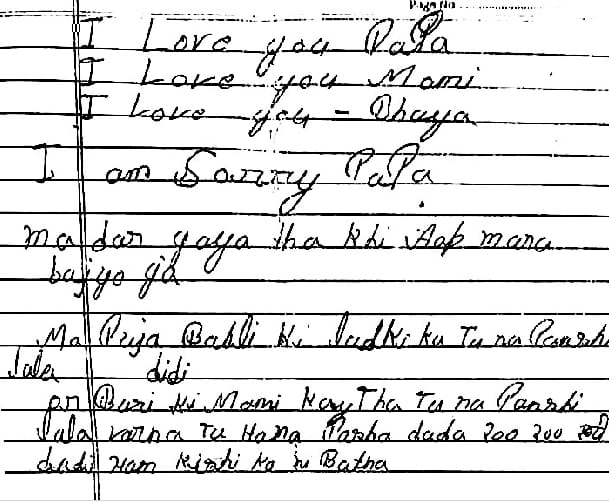 Page No
I Love you PaPa
I Love you Momi
I Love you - Bhaya
I am Sorry PaPa
ma dar gaya tha khi Aap mara
Ma Prija Babli Ki ladki ku Tu na
lala didi
Buri ki Mami Tha Tu na Panshi
lala varna Tu dada 200 200
dadi Ham Kishi ko Batha